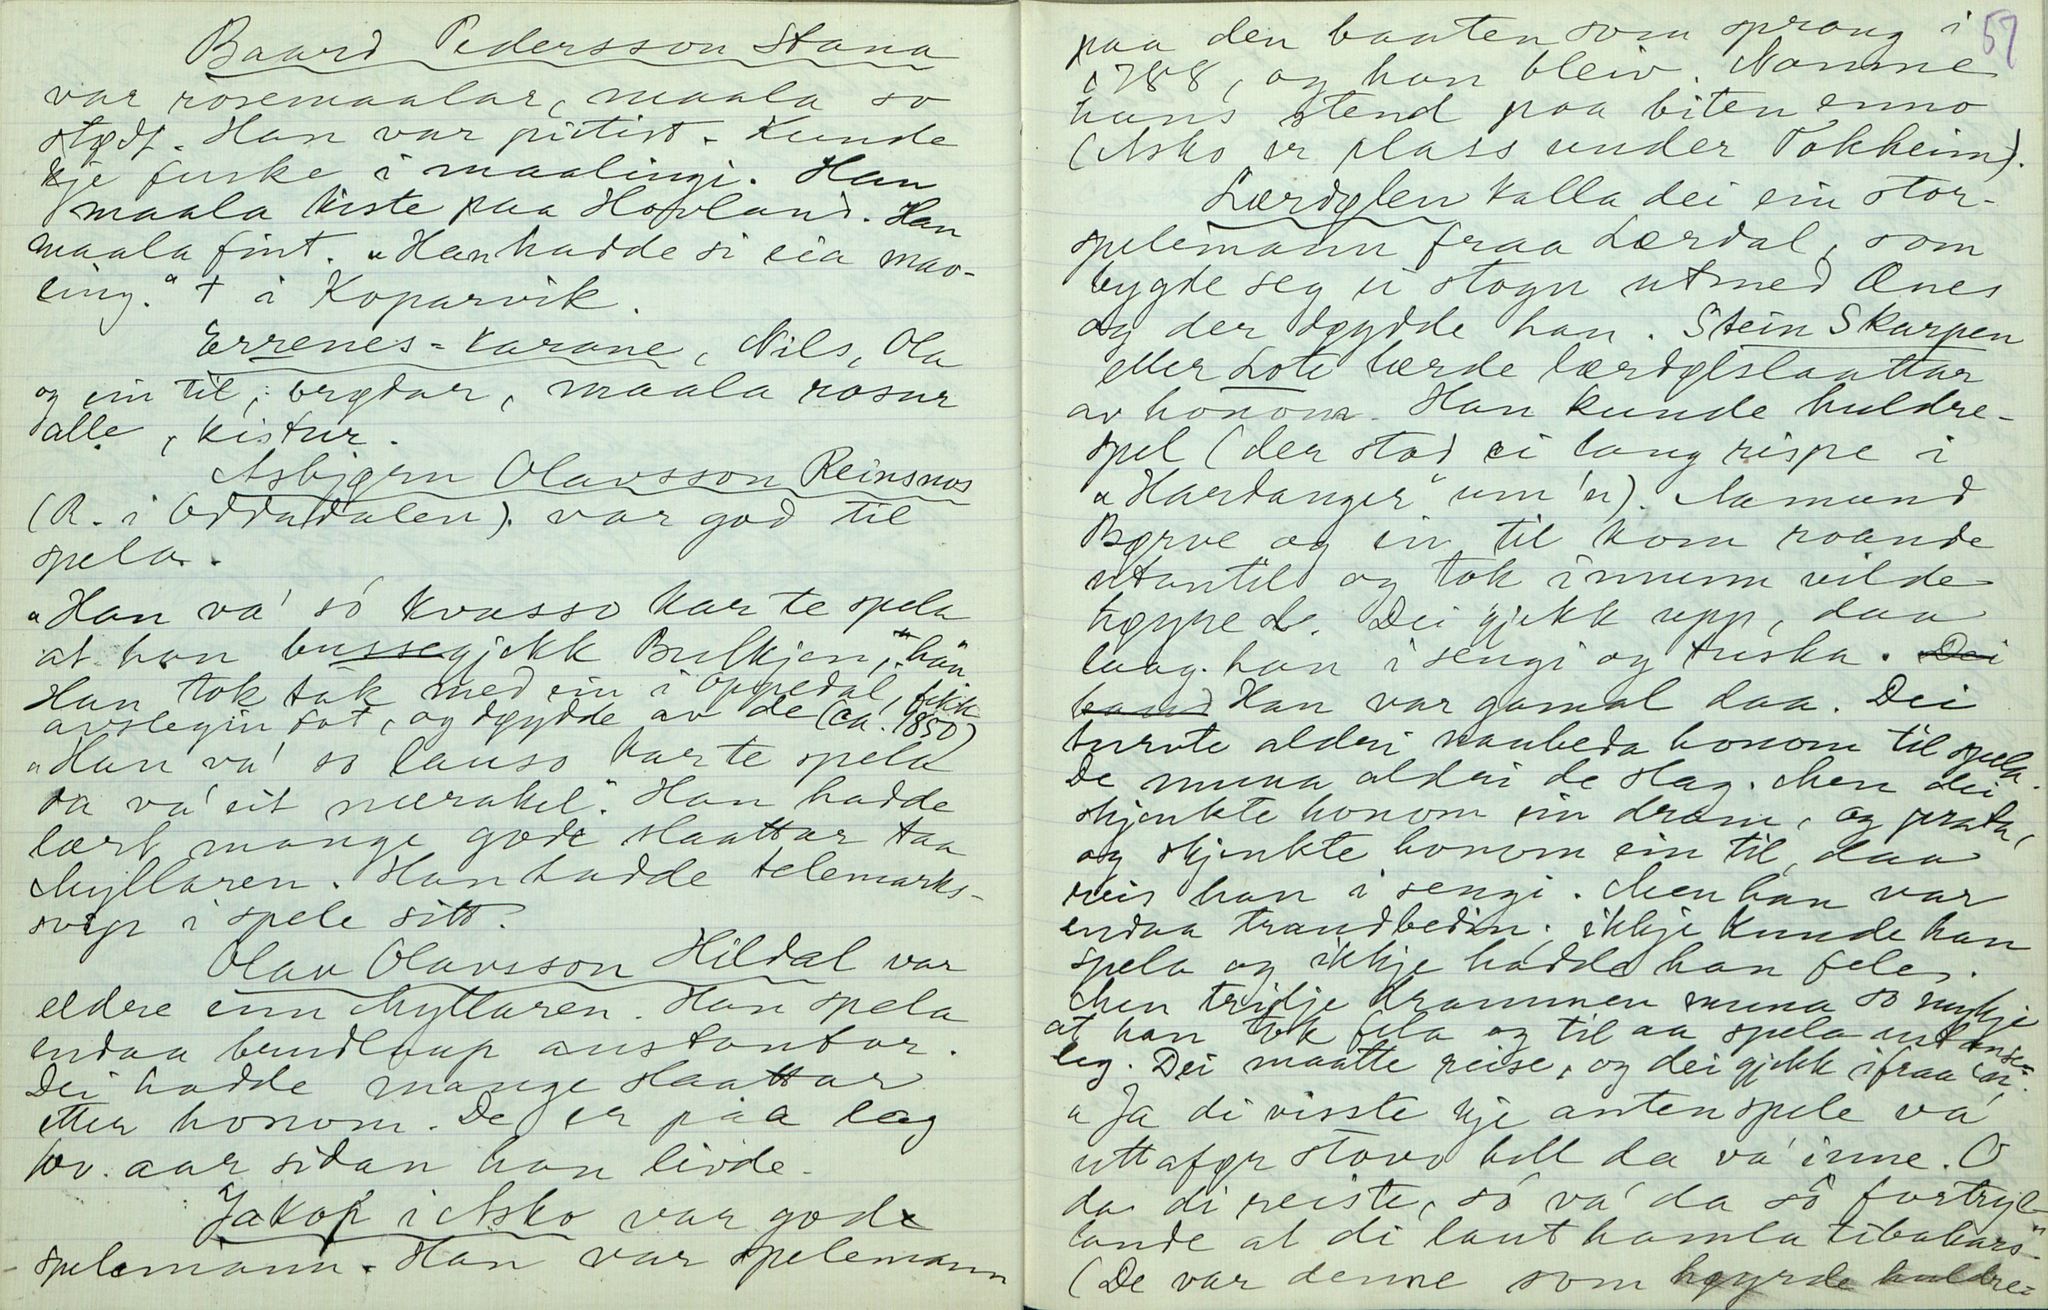 Baard Pedersson Stana
var rosemaalar, maala so
stødt. Han var pietist. Kunde
kje fuske i maalingi. Han
maala kiste paa Hovland. Han
maala fint. „Han hadde si eia mao-
ling." † i Koparvik.
Errenes-karane, Nils, Ola
og ein til, brødar, maala rosur
alle, kistur.
Asbjørn Olavsson Reinsnos
(R. i Oddadalen). var god til
spela.
„Han va' só kvasso kar te spela
at han bussegjekk Bulkjen," „han
Han tok tak med ein i Oppedal, fekk
avslegin fot, og døydde av de (ca. 1850)
„Han va' so lauso kar te spela
da va' eit merakel". Han hadde
lært mange gode slaattar taa
Myllaren. Han hadde telemarks-
svip i spele sitt.
Olav Olavsson Hildal var
eldre enn Myllaren. Han spela
endaa brudlaup austantor.
Dei hadde mange slaattar
etter honom. De er paa lag
100. aar sidan han livde.
Jakop i Asko var gode
spelemann. Han var spelemann
57
paa den baaten som sprang i
1788, og han bleiv. Namne
hans stend paa biten enno
(Asko er plass under Tokheim).
Lærdølen kalla dei ein stor-
spelemann fraa Lærdal, som
bygde seg ei stogu utmed Ænes
og der døydde han. Stein Skarpen
eller Lote lærde lærdølslaattar
av honom. Han kunde huldre-
spel (der stod ei lang rispe i
„Hardanger" um 'n). Aamund
Børve og ein til kom roande
utantil og tok inn
Dei gjekk upp, daa
laag han i sengi og truska. Dei
baad Han var gamal daa. Dei
turvte aldri naubeda honom til spela.
De muna aldri de slag. Men dei
skjenkte honom ein dram, og prata,
og skjenkte honom ein til, daa
reis han i sengi. Men han var
endaa traudbedin. ikkje kunde han
spela og ikkje hadde han fele.
Men tridje drammen muna so mykje
at han tok fela og til aa spela
leg. Dei maatte reise, og dei gjekk ifraa 'n.
„Ja di visste kje anten spele va'
uttafør stovo hell da va' inne. O
da di reiste, só va' da só fortryl-
lande at di laut hamla tibakars"
(De var denne som høyrde huldre-